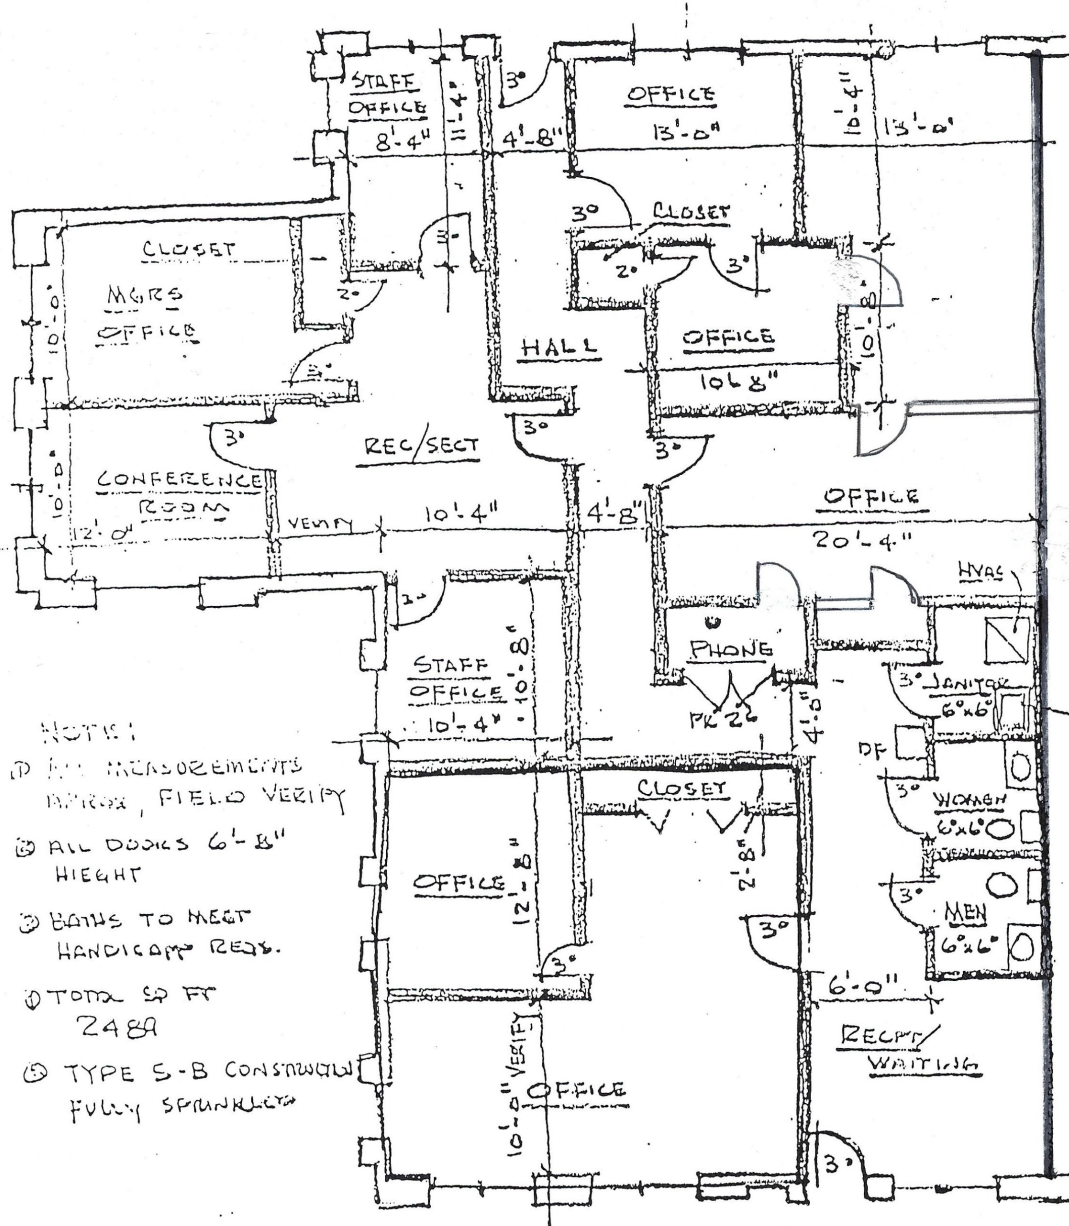 STAFF
OFFICE
8'-4"
11'-4"
3°
4'-8"
OFFICE
13'-0"
10'-4"
13'-0"
3°
CLOSET
CLOSET
2°
3°
MGRS
OFFICE
10'-0"
2°
HALL
OFFICE
10'-8"
10'-8"
3°
3°
3°
REC/SECT
CONFERENCE
ROOM
10'-0"
12'-0"
VERIFY
10'-4"
4'-8"
OFFICE
20'-4"
HVAC
3°
STAFF
OFFICE
10'-4"
10'-8"
PHONE
PR 26
4'-0"
3°
JANITOR
6°x6°
DF
3°
WOMEN
6°x6°
3°
MEN
6°x6°
CLOSET
2'-8"
OFFICE
12'-8"
3°
3°
6'-0"
RECPT/
WAITING
10'-0" VERIFY
OFFICE
3°
NOTE:
① ALL MEASUREMENTS
APROX, FIELD VERIFY
② ALL DOORS 6'-8"
HIEGHT
③ BATHS TO MEET
HANDICAPP REQS.
④ TOTAL SQ FT
2489
⑤ TYPE 5-B CONSTRUCTION
FULLY SPRINKLERD